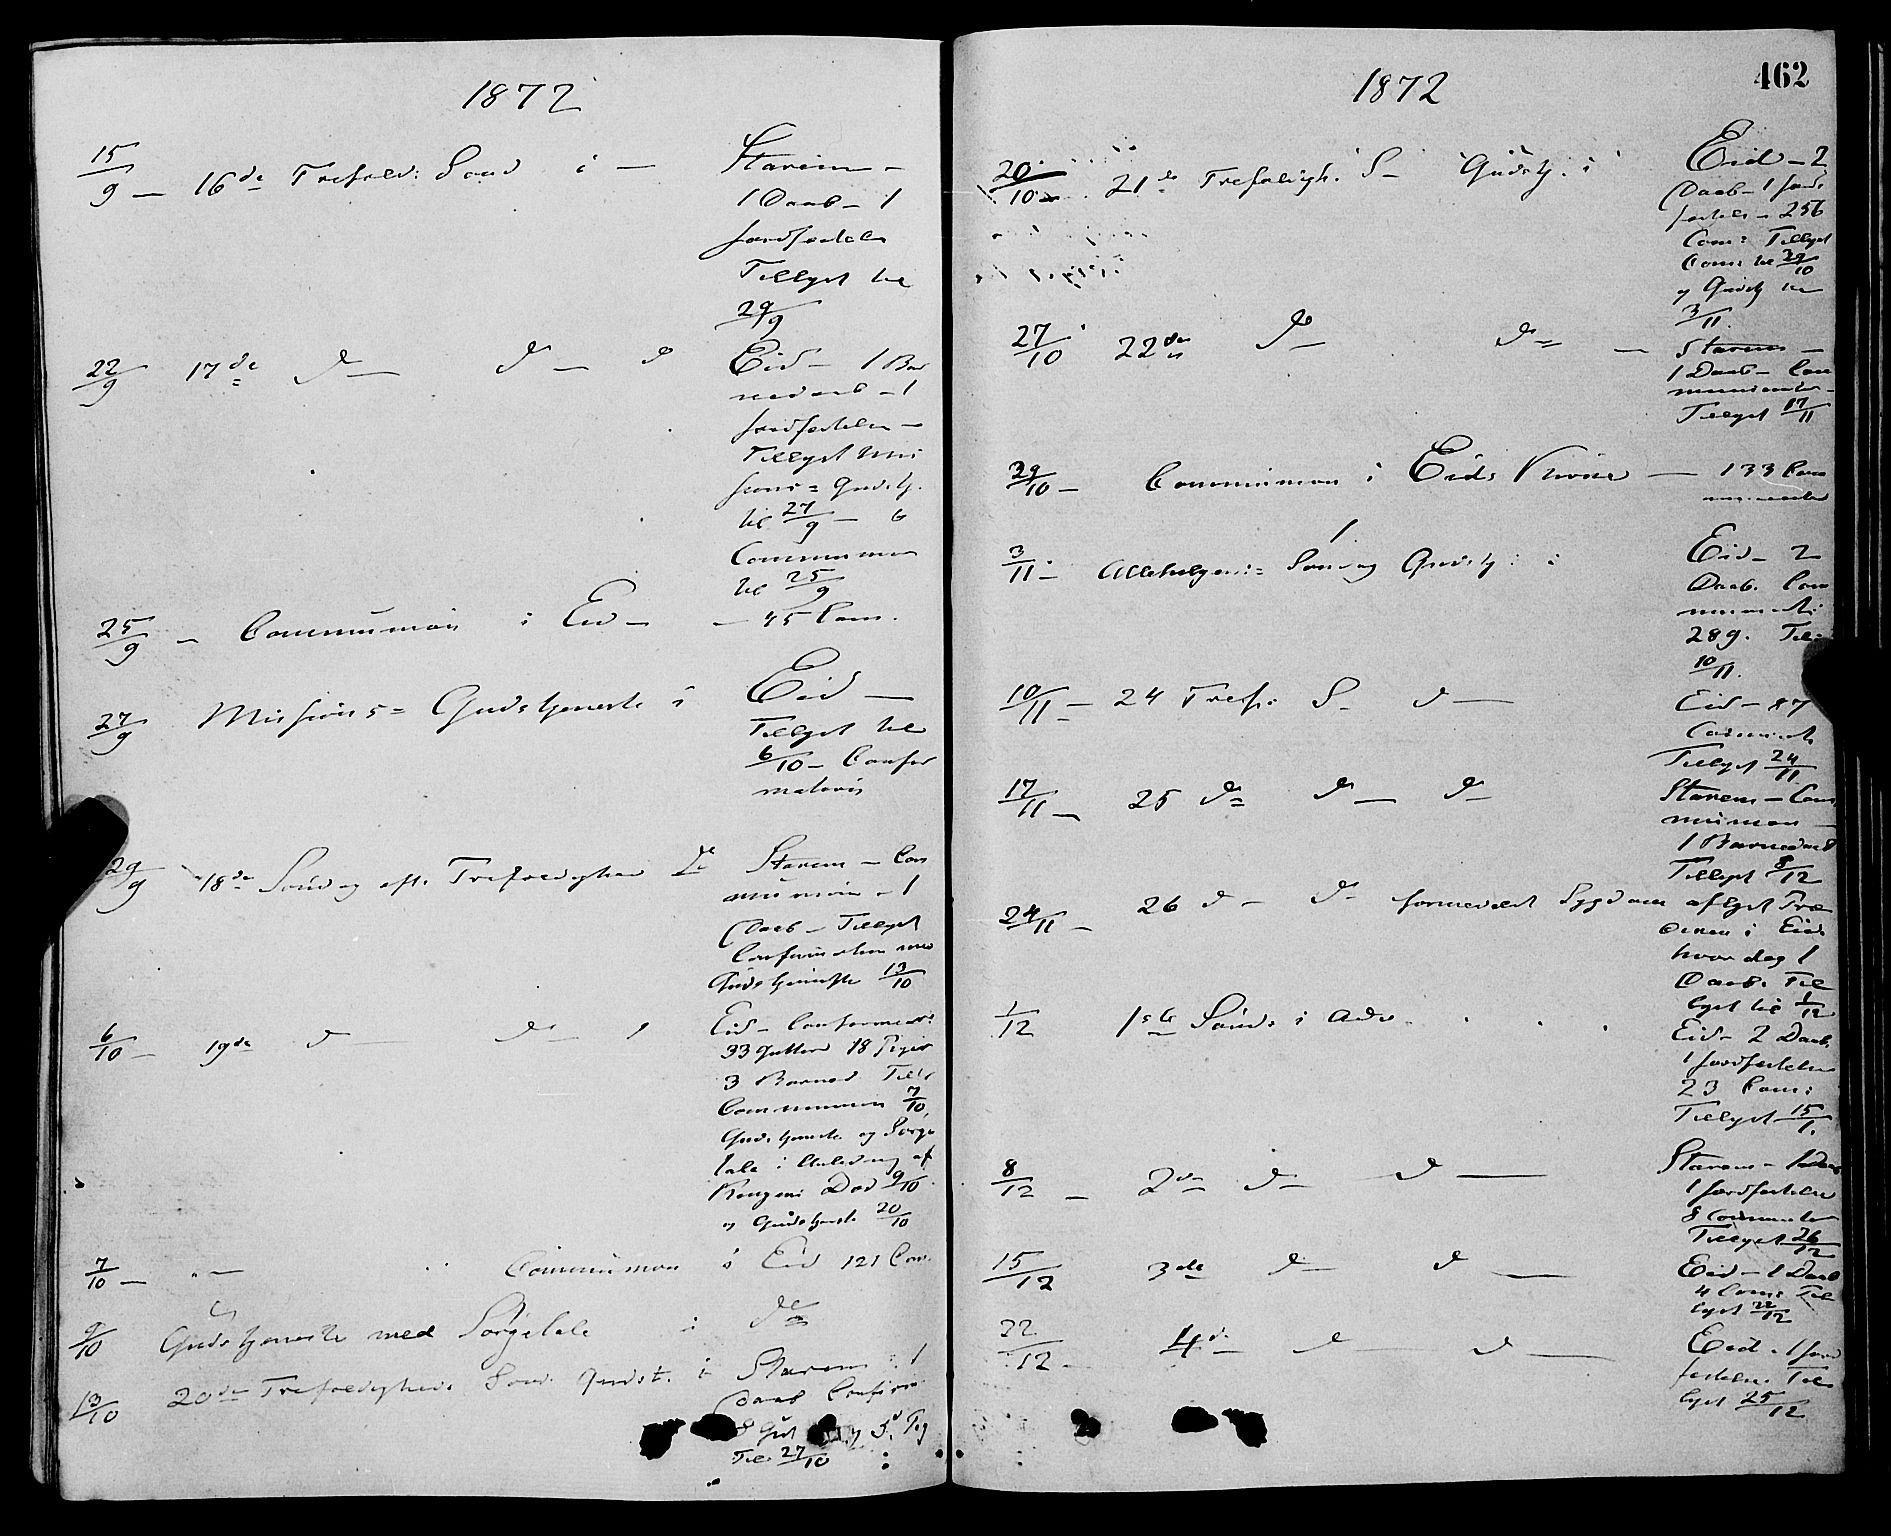 1872
15/9 – 16de Trefold: Sønd i – Starem –
1 Daab – 1
Jordfæstelse
Tillyst til
29/9
22/9 17de d – d – d Eid – 1 Bar
nedaab – 1
Jordfæstelse –
Tillyst Mis
sions= Gudstj.
til 27/9 – &
Communion
til 25/9
25/9 – Communion i Eid – – 45 Com.
27/9 Missions= Gudstjeneste i Eid –
Tillyst til
6/10 – Confir
mation
29/9 18de Søndag eft. Trefoldighed do Starem – Com
munion – 1
Daab – Tillyst
Confirmation med
Gudstjeneste 13/10
6/10 – 19de d – d – Eid – Confirmation:
33 Gutter 18 Piger
3 Barned Till.
Communion 7/10,
Gudstjeneste og Sørge
tale i Anledning af
Kongens Død 9/10
og Gudstjeneste 20/10
7/10 – " – Communion i Eid 121 Com.
9/10 Gudstjeneste med Sørgetale i do
13/10 20de Trefoldigheds Sønd. Gudst. i Starem : 1
Daab Confirm
8 Gut og 5 Pig
Til. 27/10
1872
462
20/10 21de Trefoldigh. S – Gudstj. i Eid – 2
Daab – 1 Jord
fæstelse – 256
Com: Tillyst
Com: til 29/10
og Gudstj til
3/11.
27/10 22de d – d – – Starem –
1 Daab – Com
munianter –
Tillyst 17/11
29/10 – Communion i Eids Kirke – 133 Com
munianter
3/11 – Allehelgens= Søndag Gudstj: i Eid – 2
Daab. Com
munianti
289. Til:
10/11.
10/11 – 24 Tref: S – d – Eid – 87
Communi
Tillyst 24/11
17/11 – 25 d – d – d – Starem – Com
munion –
1 Barnedaab
Tillyst 8/12
24/11 – 26 d – d – formedelst Sygdom aflyst Præ
kenen i Eid
hvor dog 1
Daab. Til
lyst til 1/12
1/12 1ste Sønd: i Adv. Eid – 2 Daab.
1 Jordfæstelse
23 Com:
Tillyst 15/1.
8/12 – 2den d – d – Starem – 1 Daab
1 Jordfæstelse
8 Communianter
Tillyst 26/12
15/12 3die d – d – Eid – 1 Daab
4 Com: Til
lyst 22/12
22/12 – 4de d – d – Eid. 1 Jord
fæstelse. Til
lyst 25/12